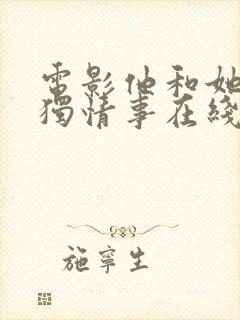 電影他和她
獨情事在綫
施寧生